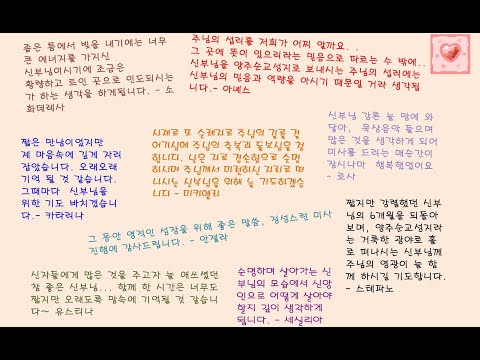 좁은 틈에서 빛을 내기에는 너무
큰 에너지를 가지신
신부님이시기에 조금은
황량하고 트인 곳으로 인도되시는
가 하는 생각을 하게됩니다. - 소
화데레사
주님의 섭리를 저희가 어찌 알까요. .
그 곳에 뜻이 있으리라는 믿음으로 따르는 수 밖에..
신부님을 양주순교성지로 보내시는 주님의 섭리에는
신부님의 믿음과 역량을 아시기 때문일 거라 생각됩
니다.- 아녜스
짧은 만남이었지만
제 마음속에 깊게 자리
잡았습니다. 오래오래
기억 될 것 같습니다.
그때마다 신부님을
위한 기도 바치겠습니
다.- 카타리나
시제로 또 순례지로 주님의 길을 걸
어가심에 주님의 축복과 돌보심을 청
합니다. 낮은 자로 겸손함으로 순명
하시며 주님께서 마련하신 자리로 떠
나시는 신부님을 위해 늘 기도하겠습
니다 - 미카엘라
신부님 강론 늘 맘에 와
닿아, 묵상음악 들으며
많은 것을 생각하게 되어
미사를 드리는 매순간이
잠시나마 행복했었어요
- 로사
그 동안 영적인 성장을 위해 좋은 말씀, 정성스런 미사
진행에 감사드립니다. - 안젤라
짧지만 강렬했던 신부
님의 6개월을 되돌아
보며, 양주순교성지라
는 거룩한 광야로 홀
로 떠나시는 신부님께
주님의 영광이 늘 함
께 하시길 기도합니다.
- 스테파노
신자들에게 많은 것을 주고자 늘 애쓰셨던
참 좋은 신부님... 함께 한 시간은 너무도
짧지만 오래도록 맘속에 기억될 것 같습니
다~ 유스티나
순명하며 살아가는 신
부님의 모습에서 신앙
인으로 어떻게 살아야
할지 깊이 생각하게
됩니다. - 세실리아